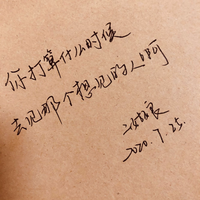 你打算什么时候
去见那个想见的人啊
2020.7.25.